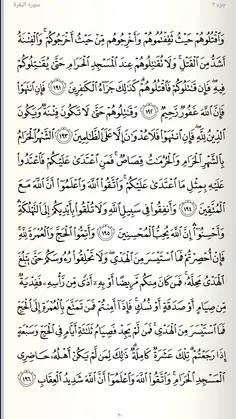 سورة البقرة جزء ٢
وَٱقْتُلُوهُمْ حَيْثُ ثَقِفْتُمُوهُمْ وَأَخْرِجُوهُم مِّنْ حَيْثُ أَخْرَجُوكُمْ ۚ وَٱلْفِتْنَةُ
أَشَدُّ مِنَ ٱلْقَتْلِ ۚ وَلَا تُقَٰتِلُوهُمْ عِندَ ٱلْمَسْجِدِ ٱلْحَرَامِ حَتَّىٰ يُقَٰتِلُوكُمْ
فِيهِ ۖ فَإِن قَٰتَلُوكُمْ فَٱقْتُلُوهُمْ ۗ كَذَٰلِكَ جَزَآءُ ٱلْكَٰفِرِينَ ١٩١ فَإِنِ ٱنتَهَوْا۟
فَإِنَّ ٱللَّهَ غَفُورٌ رَّحِيمٌ ١٩٢ وَقَٰتِلُوهُمْ حَتَّىٰ لَا تَكُونَ فِتْنَةٌ وَيَكُونَ
ٱلدِّينُ لِلَّهِ ۖ فَإِنِ ٱنتَهَوْا۟ فَلَا عُدْوَٰنَ إِلَّا عَلَى ٱلظَّٰلِمِينَ ١٩٣ ٱلشَّهْرُ ٱلْحَرَامُ
بِٱلشَّهْرِ ٱلْحَرَامِ وَٱلْحُرُمَٰتُ قِصَاصٌ ۚ فَمَنِ ٱعْتَدَىٰ عَلَيْكُمْ فَٱعْتَدُوا۟
عَلَيْهِ بِمِثْلِ مَا ٱعْتَدَىٰ عَلَيْكُمْ ۚ وَٱتَّقُوا۟ ٱللَّهَ وَٱعْلَمُوٓا۟ أَنَّ ٱللَّهَ مَعَ
ٱلْمُتَّقِينَ ١٩٤ وَأَنفِقُوا۟ فِى سَبِيلِ ٱللَّهِ وَلَا تُلْقُوا۟ بِأَيْدِيكُمْ إِلَى ٱلتَّهْلُكَةِ ۛ
وَأَحْسِنُوٓا۟ ۛ إِنَّ ٱللَّهَ يُحِبُّ ٱلْمُحْسِنِينَ ١٩٥ وَأَتِمُّوا۟ ٱلْحَجَّ وَٱلْعُمْرَةَ لِلَّهِ ۚ
فَإِنْ أُحْصِرْتُمْ فَمَا ٱسْتَيْسَرَ مِنَ ٱلْهَدْىِ ۖ وَلَا تَحْلِقُوا۟ رُءُوسَكُمْ حَتَّىٰ يَبْلُغَ
ٱلْهَدْىُ مَحِلَّهُۥ ۚ فَمَن كَانَ مِنكُم مَّرِيضًا أَوْ بِهِۦٓ أَذًى مِّن رَّأْسِهِۦ فَفِدْيَةٌ
مِّن صِيَامٍ أَوْ صَدَقَةٍ أَوْ نُسُكٍ ۚ فَإِذَآ أَمِنتُمْ فَمَن تَمَتَّعَ بِٱلْعُمْرَةِ إِلَى ٱلْحَجِّ
فَمَا ٱسْتَيْسَرَ مِنَ ٱلْهَدْىِ ۚ فَمَن لَّمْ يَجِدْ فَصِيَامُ ثَلَٰثَةِ أَيَّامٍ فِى ٱلْحَجِّ وَسَبْعَةٍ
إِذَا رَجَعْتُمْ ۗ تِلْكَ عَشَرَةٌ كَامِلَةٌ ۗ ذَٰلِكَ لِمَن لَّمْ يَكُنْ أَهْلُهُۥ حَاضِرِى
ٱلْمَسْجِدِ ٱلْحَرَامِ ۚ وَٱتَّقُوا۟ ٱللَّهَ وَٱعْلَمُوٓا۟ أَنَّ ٱللَّهَ شَدِيدُ ٱلْعِقَابِ ١٩٦
٣٠